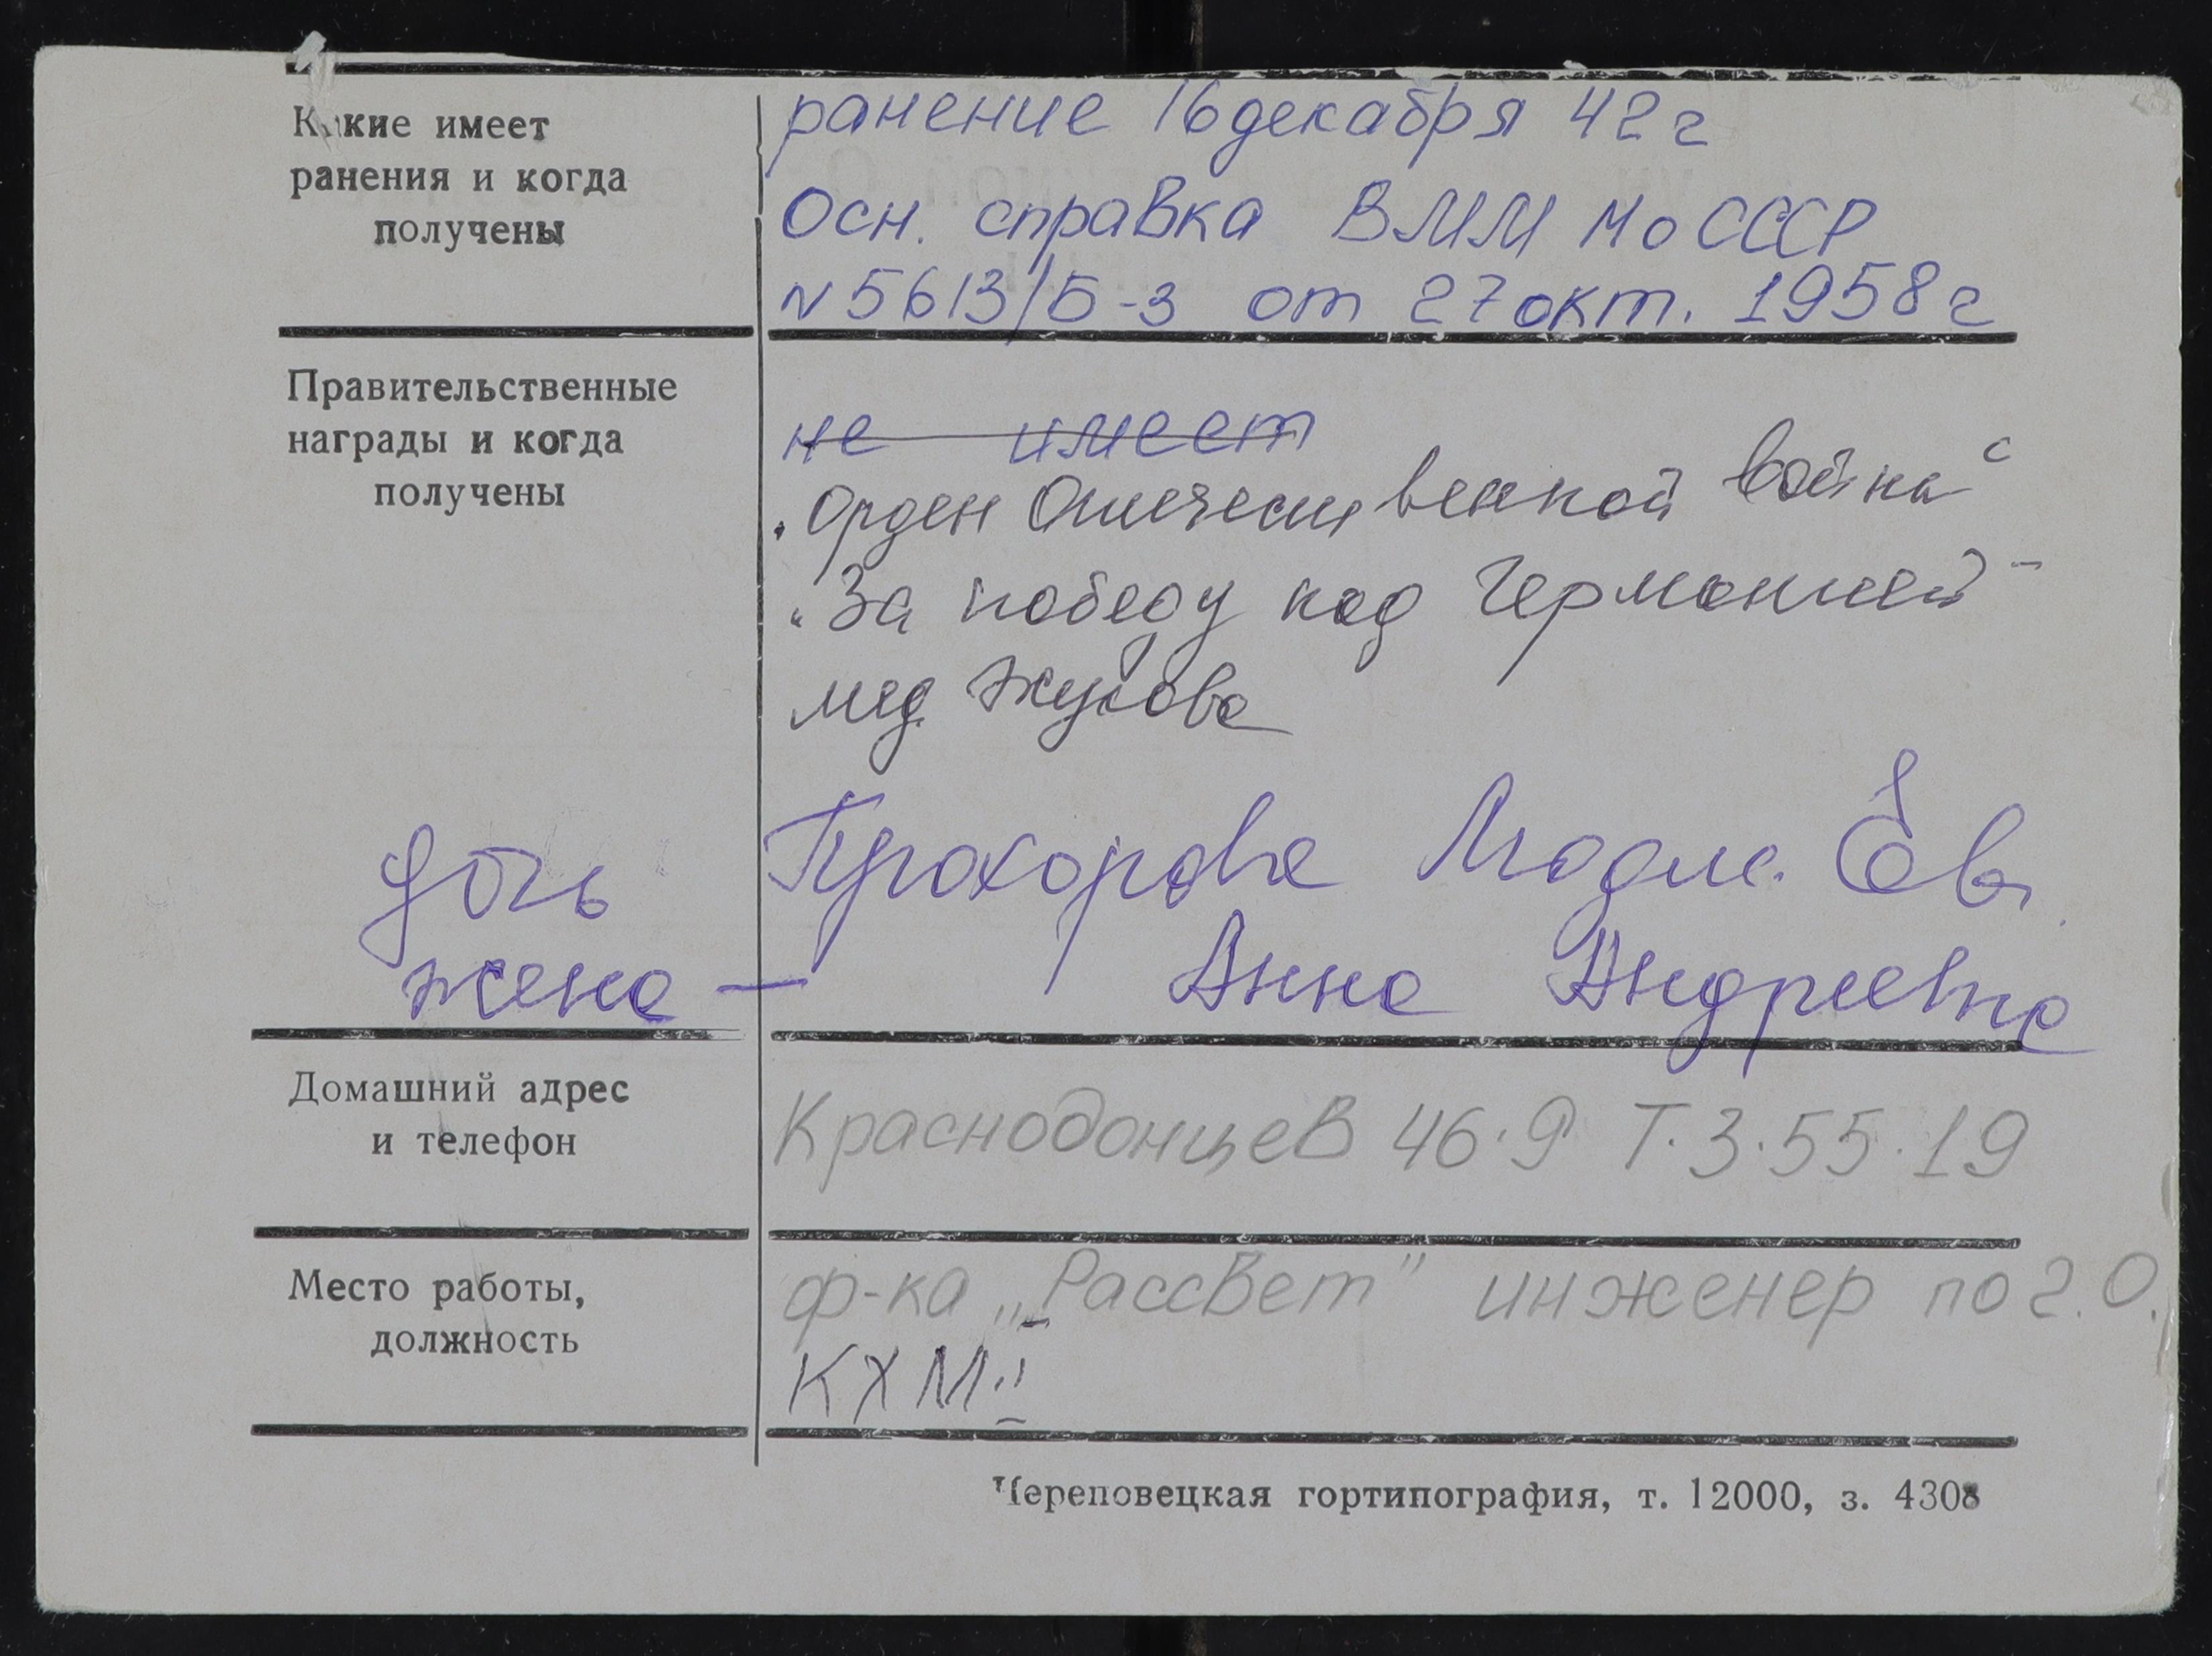 Какие имеет
ранения и когда
получены
ранение 16 декабря 42 г
Осн. справка ВММ МО СССР
N 5613/Б-3 от 27 окт. 1958 г
Правительственные
награды и когда
получены
не имеет
„Орден Отечественной война“
„За победу над Германией“
мед Жукова
дочь Прохорова Людм. Ев.
жена — Анна Андреевна
Домашний адрес
и телефон
Краснодонцев 46·9 Т·3·55·19
Место работы,
должность
ф-ка „Рассвет” инженер по г.О.
КХМ
Череповецкая гортипография, т. 12000, з. 4308